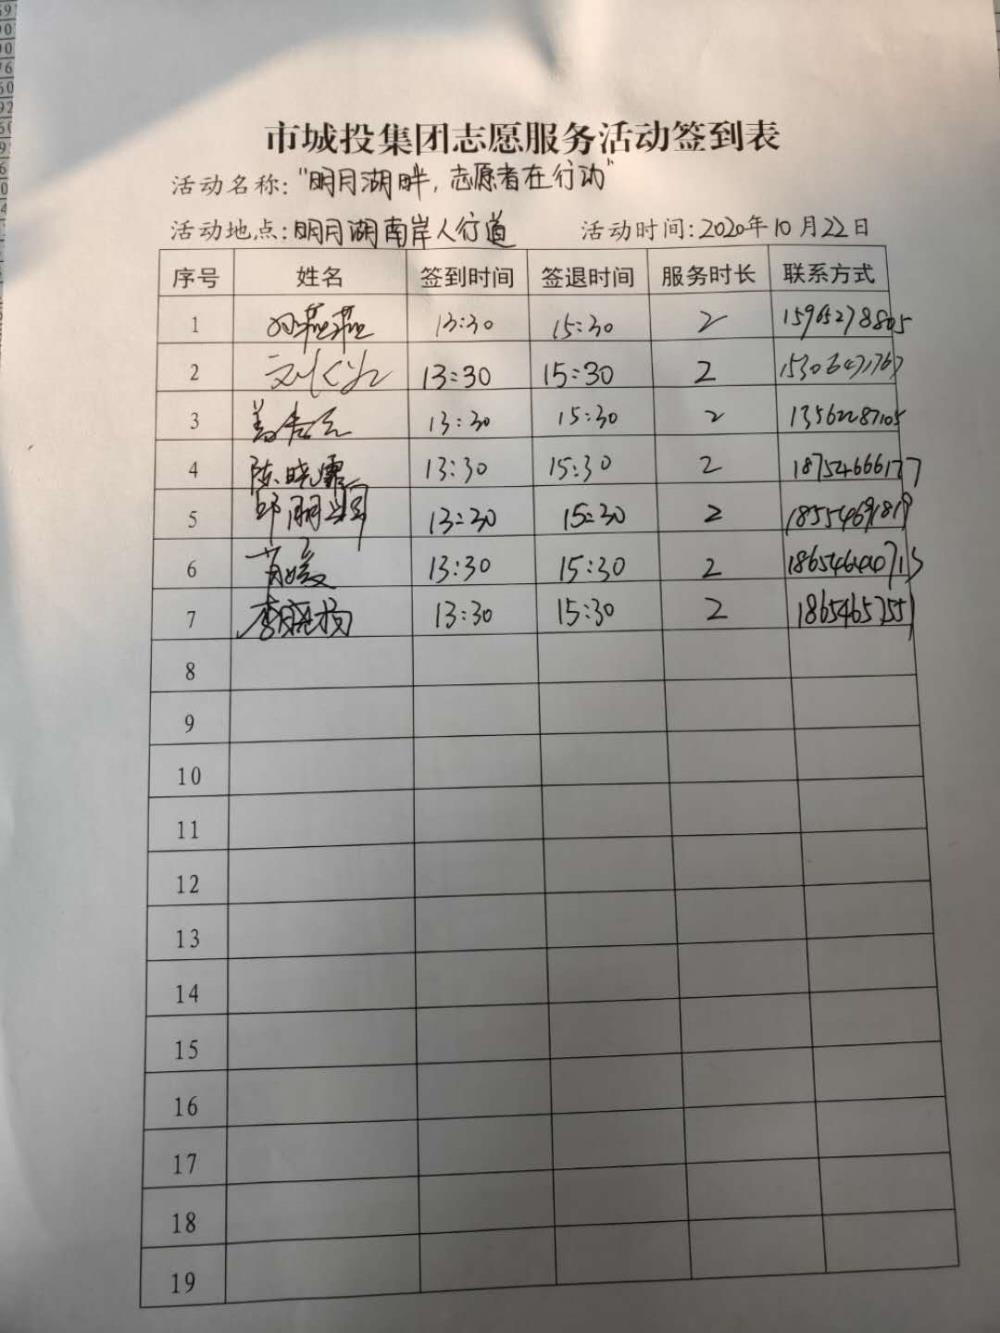 市城投集团志愿服务活动签到表
活动名称:"明月湖畔,志愿者在行动"
活动地点:明月湖南岸人行道 活动时间:2020年10月22日
序号 姓名 签到时间 签退时间 服务时长 联系方式
1 13:30 15:30 2 15965278805
2 13:30 15:30 2
3 13:30 15:30 2 13562287105
4 陈晓霏 13:30 15:30 2 18754666177
5 13:30 15:30 2 18554691819
6 13:30 15:30 2
7 13:30 15:30 2
8
9
10
11
12
13
14
15
16
17
18
19